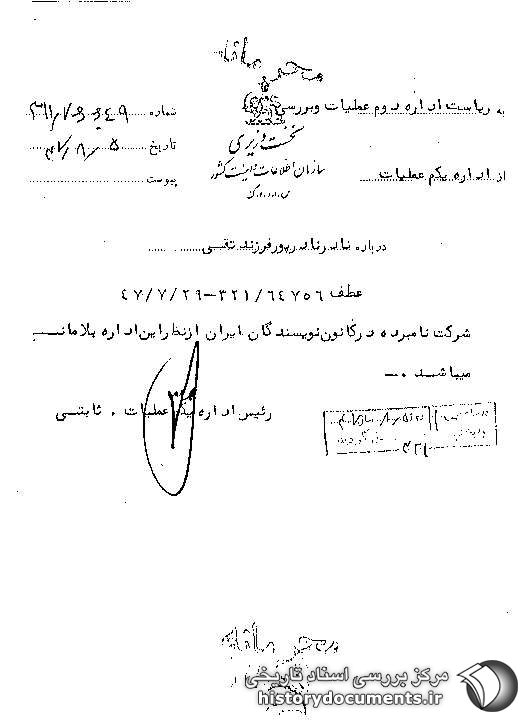 محرمانه
به ریاست اداره دوم عملیات و بررسی
شماره
نخست وزیری
تاریخ ۴۷/۸/۵
از اداره یکم عملیات
سازمان اطلاعات و امنیت کشور
پیوست
درباره نادر نادرپور فرزند تقی
عطف ۳۲۱/۶۴۷۵۶-۴۷/۷/۲۹
شرکت نامبرده در کانون نویسندگان ایران از نظر این اداره بلامانـــع
میباشد .ـ
رئیس اداره یکم عملیات . ثابتی
محرمانه
مرکز بررسی اسناد تاریخی
historydocuments.ir